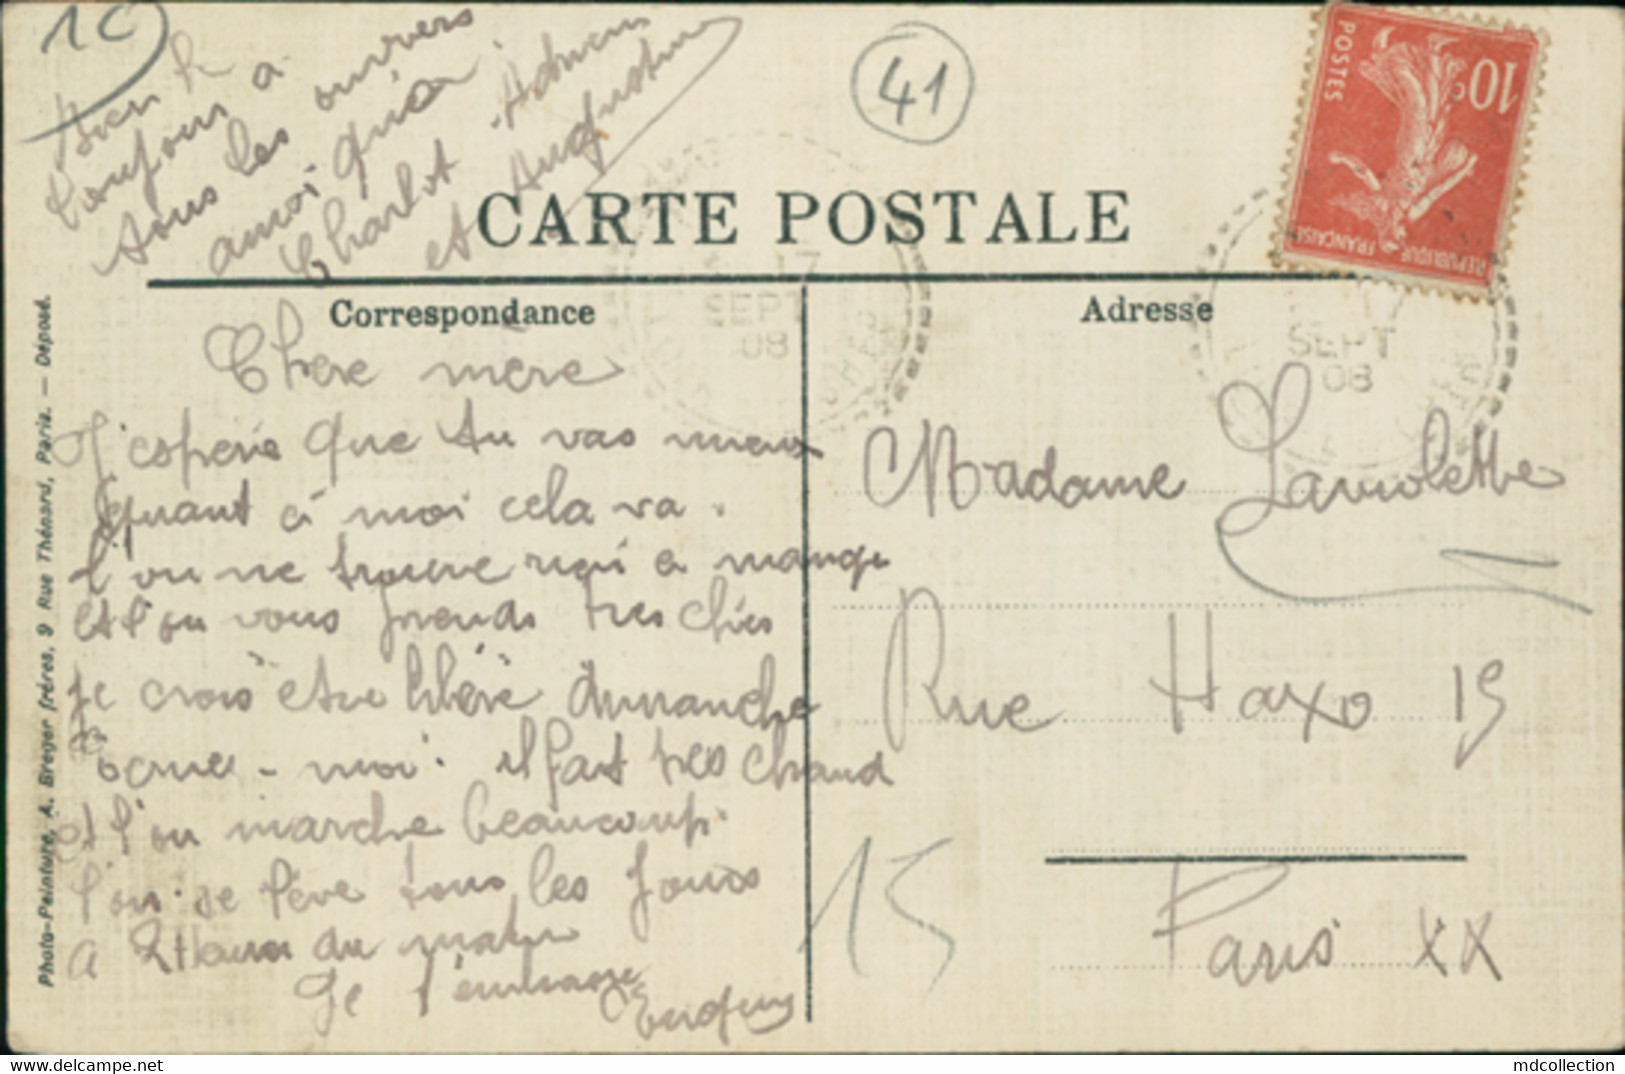 1c
Bien le
bonjour a
tous les ouvriers
ainsi qu'a
Charlot. Adrien
et Augustine
41
10c
POSTES
REPUBLIQUE FRANÇAISE
CARTE POSTALE
Correspondance
Adresse
17
SEPT
08
SEPT
08
CHER
Photo-Peinture, A. Breger frères, 9 Rue Thénard, Paris. — Déposé.
Chère mère
J'espère que tu vas mieux
quant à moi cela va.
l'on ne trouve rien a mange
et l'on vous prends tres chers
je crois etre libéré dimanche
moi. il fait tres chaud
et l'on marche beaucoup.
l'on se lève tous les jours
a 2 Heures du matin
Je t'embrasse
Madame Laviolette
Rue Haxo 15
15
Paris XX
mdcollection